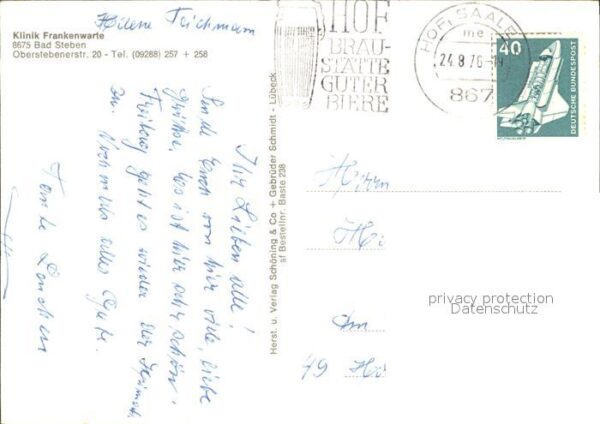 Helene Teichmann
Klinik Frankenwarte
8675 Bad Steben
Oberstebenerstr. 20 - Tel. (09288) 257 + 258
HOF
BRAU-
STÄTTE
GUTER
BIERE
HOF, SAALE
me
24.8.76
867
40
DEUTSCHE BUNDESPOST
Ihr Lieben alle!
Sende Euch von hier viele, liebe
Grüße. Es ist hier sehr schön.
Freitag geht es wieder der Heimat
zu. Nochmals alles Gute.
Tante
Herst. u. Verlag Schöning & Co + Gebrüder Schmidt - Lübeck
sf Bestellnr. Baste 238
Herrn
Am
49
privacy protection
Datenschutz